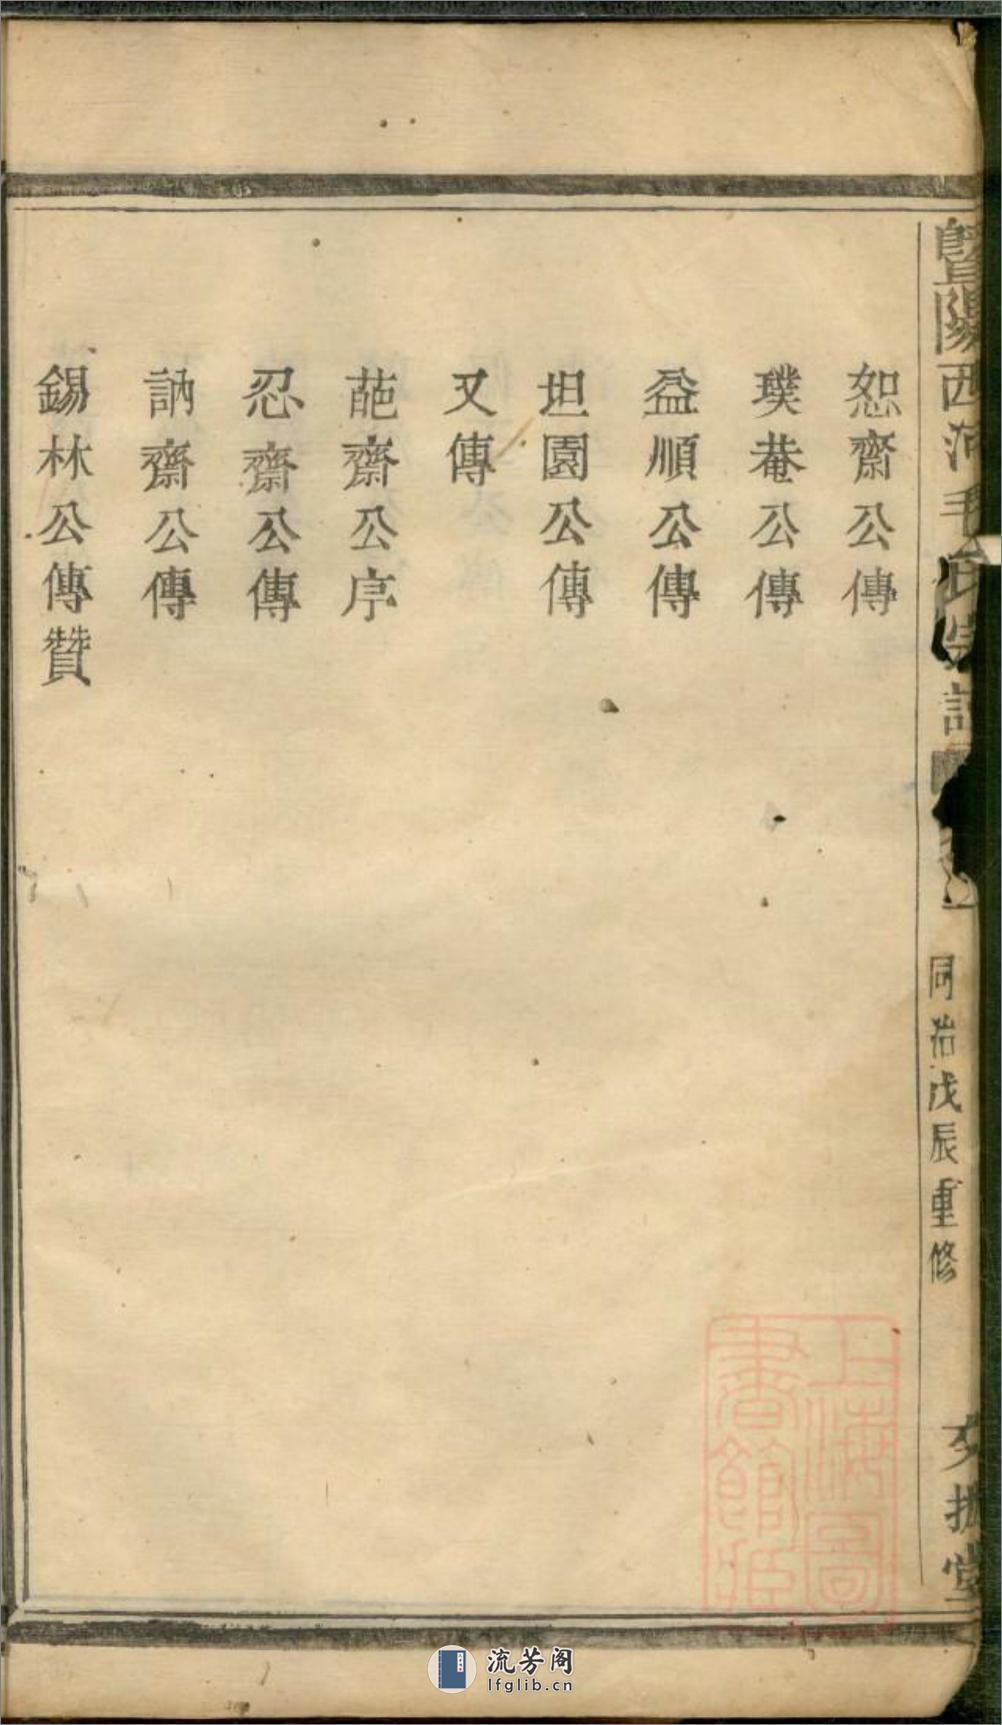 暨陽西河毛氏宗譜
同治戊辰重修
恕齋公傳
璞菴公傳
益順公傳
坦園公傳
又傳
葩齋公序
忍齋公傳
訥齋公傳
錫林公傳贊
上海圖書館藏
流芳阁
lfglib.cn